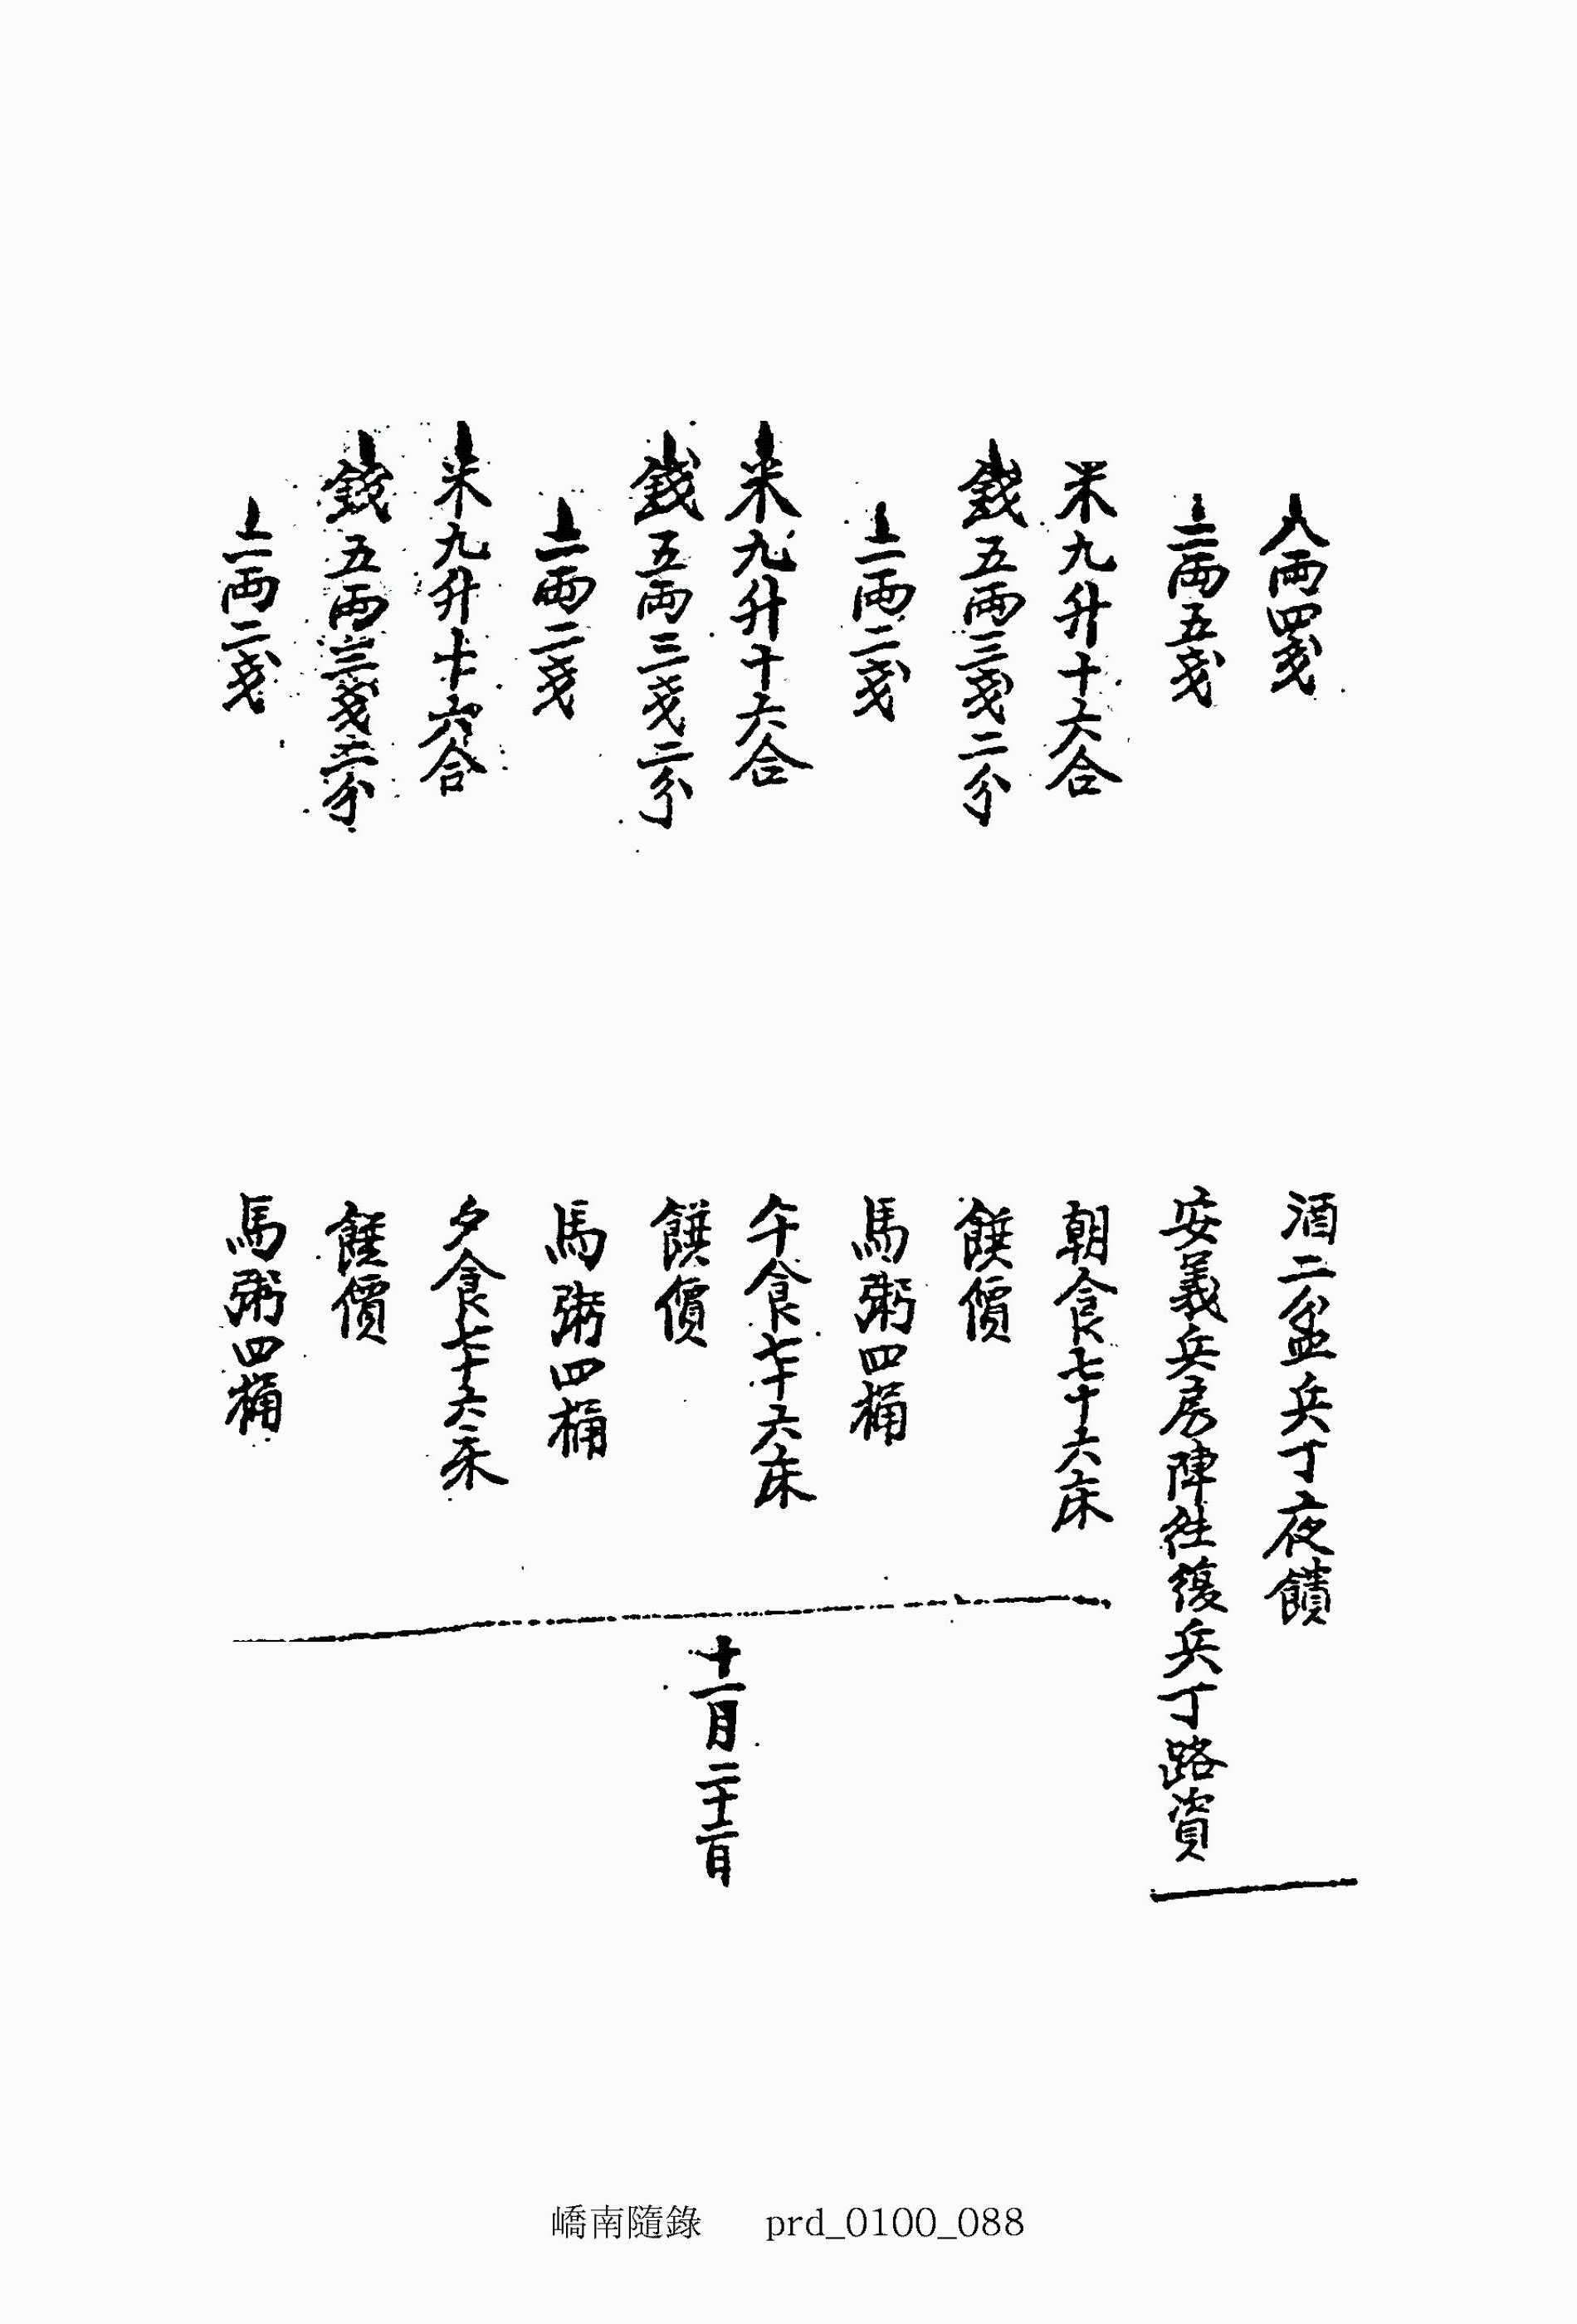 八兩四戔
酒二盆兵丁夜饋
三兩五戔
安義兵房陣往復兵丁路資
米九升十六合
朝食七十六床
錢五兩三戔二分
饌價
二兩二戔
馬粥四桶
米九升十六合
午食七十六床
錢五兩三戔二分
饌價
二兩二戔
馬粥四桶
米九升十六合
夕食七十六床
錢五兩三戔二分
饌價
二兩二戔
馬粥四桶
十一月二十二日
嶠南隨錄 prd_0100_088